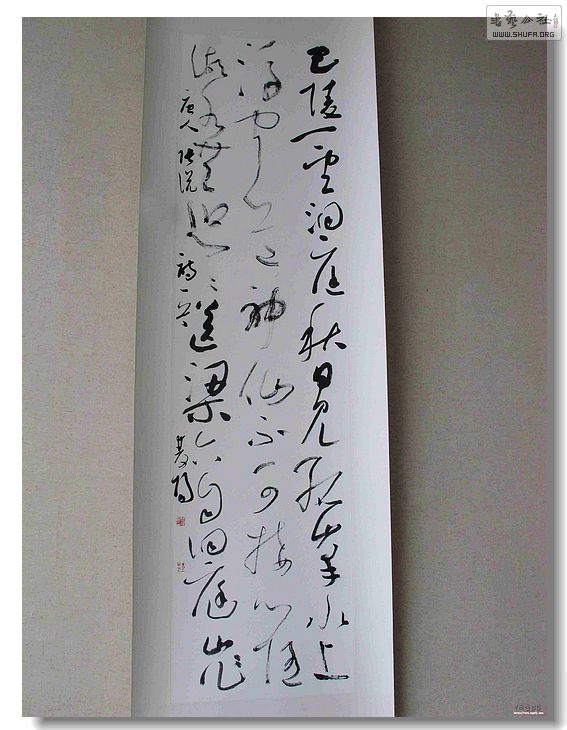 巴陵一望洞庭秋日見孤峯水上
浮聞道神仙不可接心隨
湖水共悠〻送梁六自洞庭山作
唐人張說詩一首
书艺公社
WWW.SHUFA.ORG